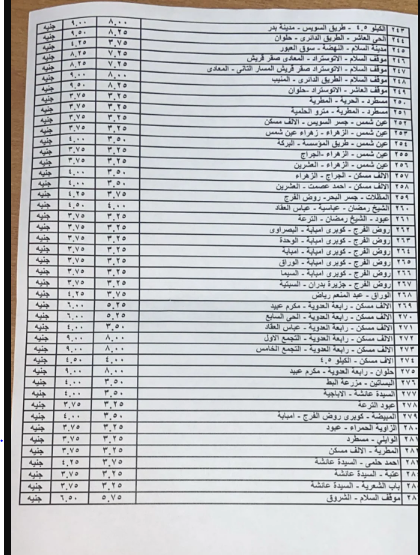 ٢٤٣ الكيلو ٤,٥ - طريق السويس - مدينة بدر ٨,٠٠ ٩,٠٠ جنيه
٢٤٤ الحي العاشر - الطريق الدائرى - حلوان ٨,٢٥ ٩,٥٠ جنيه
٢٤٥ مدينة السلام - النهضة - سوق العبور ٣,٧٥ ٤,٢٥ جنيه
٢٤٦ موقف السلام - الاتوستراد - المعادى صقر قريش ٧,٢٥ ٨,٢٥ جنيه
٢٤٧ موقف السلام - الاتوستراد صقر قريش المسار الثانى - المعادى ٧,٢٥ ٨,٢٥ جنيه
٢٤٨ موقف العاشر - الطريق الدائرى - المنيب ٨,٠٠ ٩,٠٠ جنيه
٢٤٩ موقف العاشر - الاتوستراد - حلوان ٨,٢٥ ٩,٥٠ جنيه
٢٥٠ مسطرد - الحرية - المطرية ٣,٢٥ ٣,٧٥ جنيه
٢٥١ مسطرد - المطرية - مترو الحلمية ٣,٢٥ ٣,٧٥ جنيه
٢٥٢ عين شمس - جسر السويس - الالف مسكن ٣,٢٥ ٣,٧٥ جنيه
٢٥٣ عين شمس - الزهراء - زهراء عين شمس ٣,٢٥ ٣,٧٥ جنيه
٢٥٤ عين شمس - طريق المؤسسة - البركة ٣,٥٠ ٤,٠٠ جنيه
٢٥٥ عين شمس - الزهراء - الجراج ٣,٢٥ ٣,٧٥ جنيه
٢٥٦ عين شمس - الزهراء - العشرين ٣,٢٥ ٣,٧٥ جنيه
٢٥٧ الالف مسكن - الجراج - الزهراء ٣,٥٠ ٤,٠٠ جنيه
٢٥٨ الالف مسكن - احمد عصمت - العشرين ٣,٥٠ ٤,٠٠ جنيه
٢٥٩ المظلات - جسر البحر - روض الفرج ٣,٧٥ ٤,٢٥ جنيه
٢٦٠ الشيخ رمضان - عباسية - عباس العقاد ٤,٠٠ ٤,٥٠ جنيه
٢٦١ عبود - الشيخ رمضان - الترعة ٣,٢٥ ٣,٧٥ جنيه
٢٦٢ روض الفرج - كوبرى امبابة - البصراوى ٣,٢٥ ٣,٧٥ جنيه
٢٦٣ روض الفرج - كوبرى امبابة - الوحدة ٣,٢٥ ٣,٧٥ جنيه
٢٦٤ روض الفرج - كوبرى امبابة - امبابة ٣,٢٥ ٣,٧٥ جنيه
٢٦٥ روض الفرج - كوبرى امبابة - الوراق ٣,٢٥ ٣,٧٥ جنيه
٢٦٦ روض الفرج - كوبرى امبابة - السيما ٣,٢٥ ٣,٧٥ جنيه
٢٦٧ روض الفرج - جزيرة بدران - السبتية ٣,٢٥ ٣,٧٥ جنيه
٢٦٨ الوراق - عبد المنعم رياض ٣,٧٥ ٤,٢٥ جنيه
٢٦٩ الالف مسكن - رابعة العدوية - مكرم عبيد ٥,٢٥ ٦,٠٠ جنيه
٢٧٠ الالف مسكن - رابعة العدوية - الحى السابع ٥,٢٥ ٦,٠٠ جنيه
٢٧١ الالف مسكن - رابعة العدوية - عباس العقاد ٣,٥٠ ٤,٠٠ جنيه
٢٧٢ الالف مسكن - رابعة العدوية - التجمع الاول ٨,٠٠ ٩,٠٠ جنيه
٢٧٣ الالف مسكن - رابعة العدوية - التجمع الخامس ٨,٠٠ ٩,٠٠ جنيه
٢٧٤ الاف مسكن - الكيلو ٤,٥ ٤,٠٠ ٤,٥٠ جنيه
٢٧٥ حلوان - رابعة العدوية - مكرم عبيد ٨,٠٠ ٩,٠٠ جنيه
البساتين - مزرعة البط ٣,٥٠ ٤,٠٠ جنيه
٢٧٧ السيدة عائشة - الاباجية ٣,٥٠ ٤,٠٠ جنيه
٢٧٨ عبود الترعة ٣,٢٥ ٣,٧٥ جنيه
٢٧٩ المبيضة - كوبرى روض الفرج - امبابة ٣,٥٠ ٤,٠٠ جنيه
الزاوية الحمراء - عبود ٣,٢٥ ٣,٧٥ جنيه
الوايلي - مسطرد ٣,٢٥ ٣,٧٥ جنيه
المطرية - الالف مسكن ٣,٢٥ ٣,٧٥ جنيه
احمد حلمى - السيدة عائشة ٣,٧٥ ٤,٢٥ جنيه
عتبة - السيدة عائشة ٣,٢٥ ٣,٧٥ جنيه
باب الشعرية - السيدة عائشة ٣,٢٥ ٣,٧٥ جنيه
موقف السلام - الشروق ٥,٧٥ ٦,٥٠ جنيه